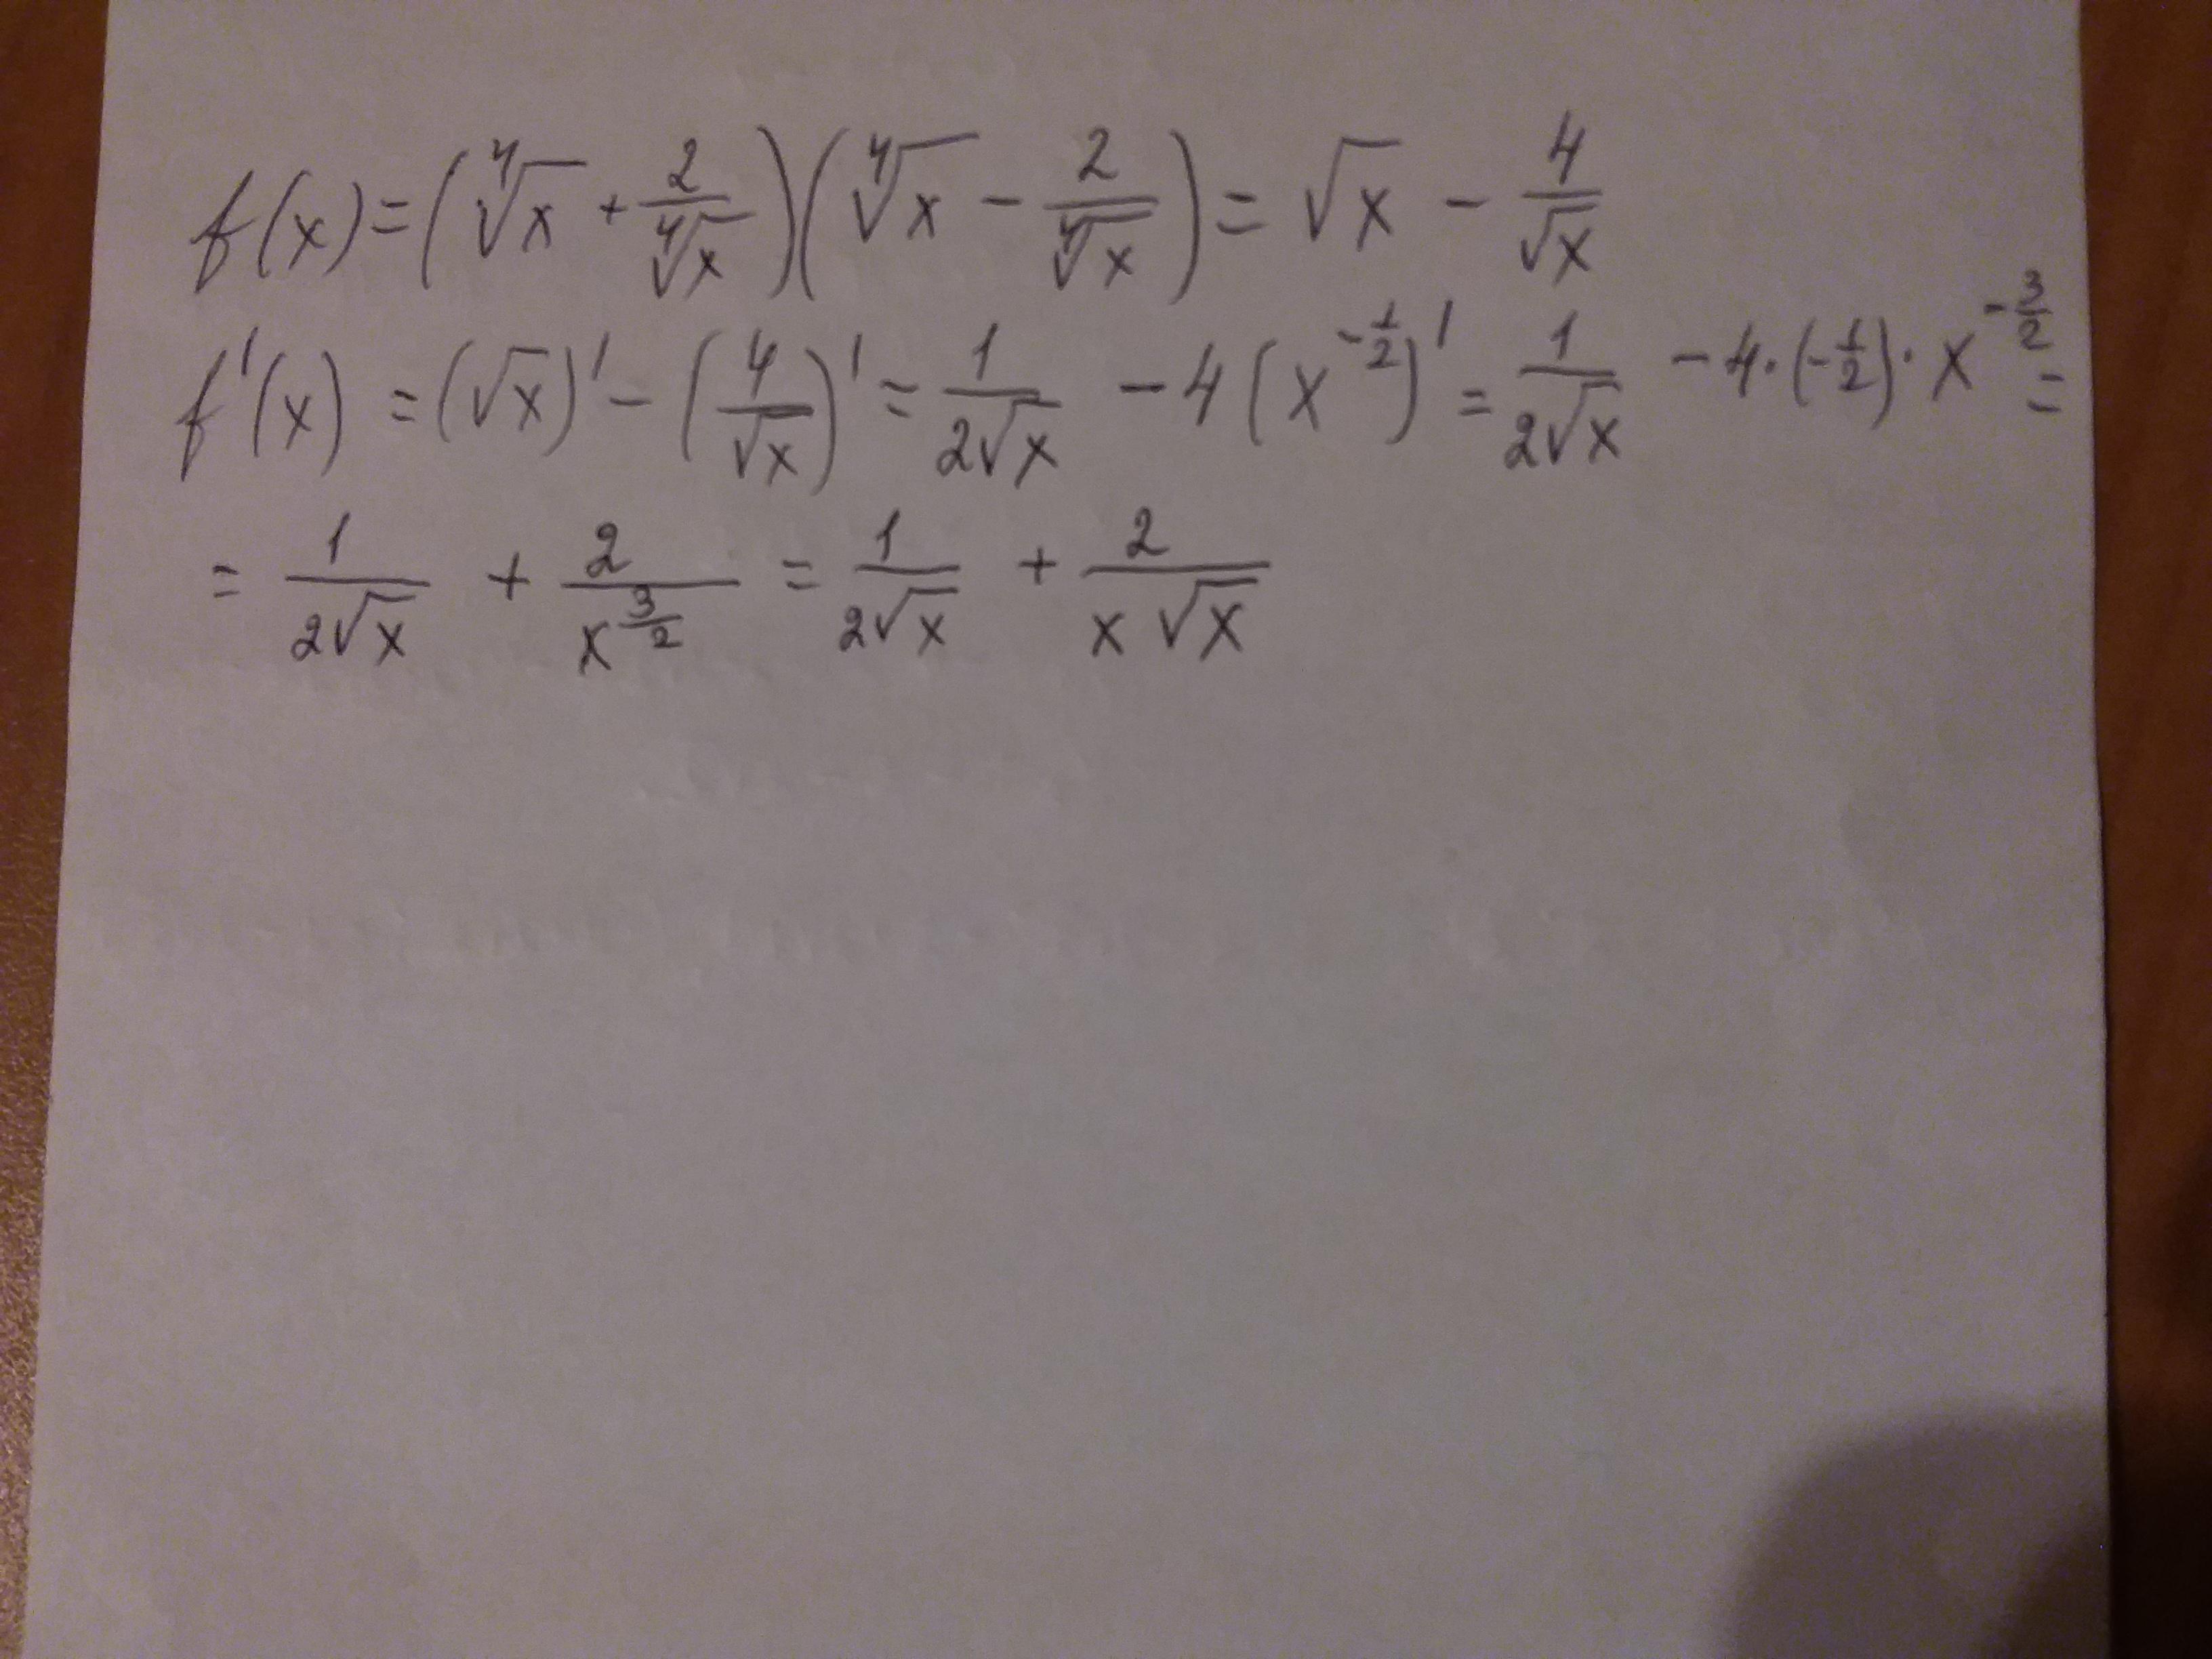 f(x)=(∜x + 2/∜x)(∜x − 2/∜x) = √x − 4/√x
f'(x) = (√x)' − (4/√x)' = 1/(2√x) − 4(x^(−1/2))' = 1/(2√x) − 4·(−1/2)·x^(−3/2) =
= 1/(2√x) + 2/x^(3/2) = 1/(2√x) + 2/(x√x)